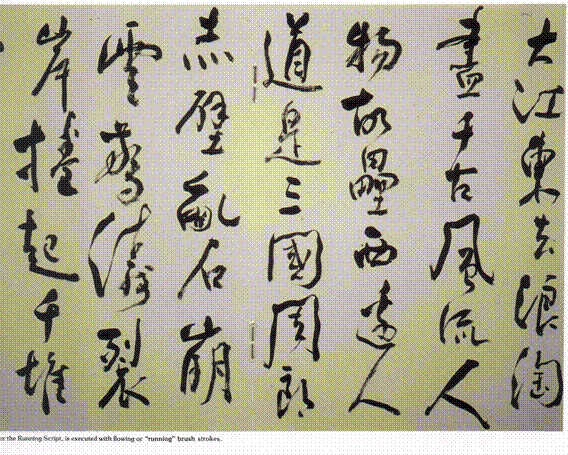 大江東去浪淘
盡千古風流人
物故壘西邊人
道是三國周郎
赤壁亂石崩
雲驚濤裂
岸捲起千堆
or the Running Script, is executed with flowing or "running" brush strokes.